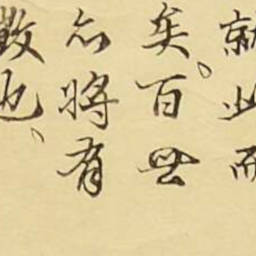 就此而
矣百世
亦將有
散也